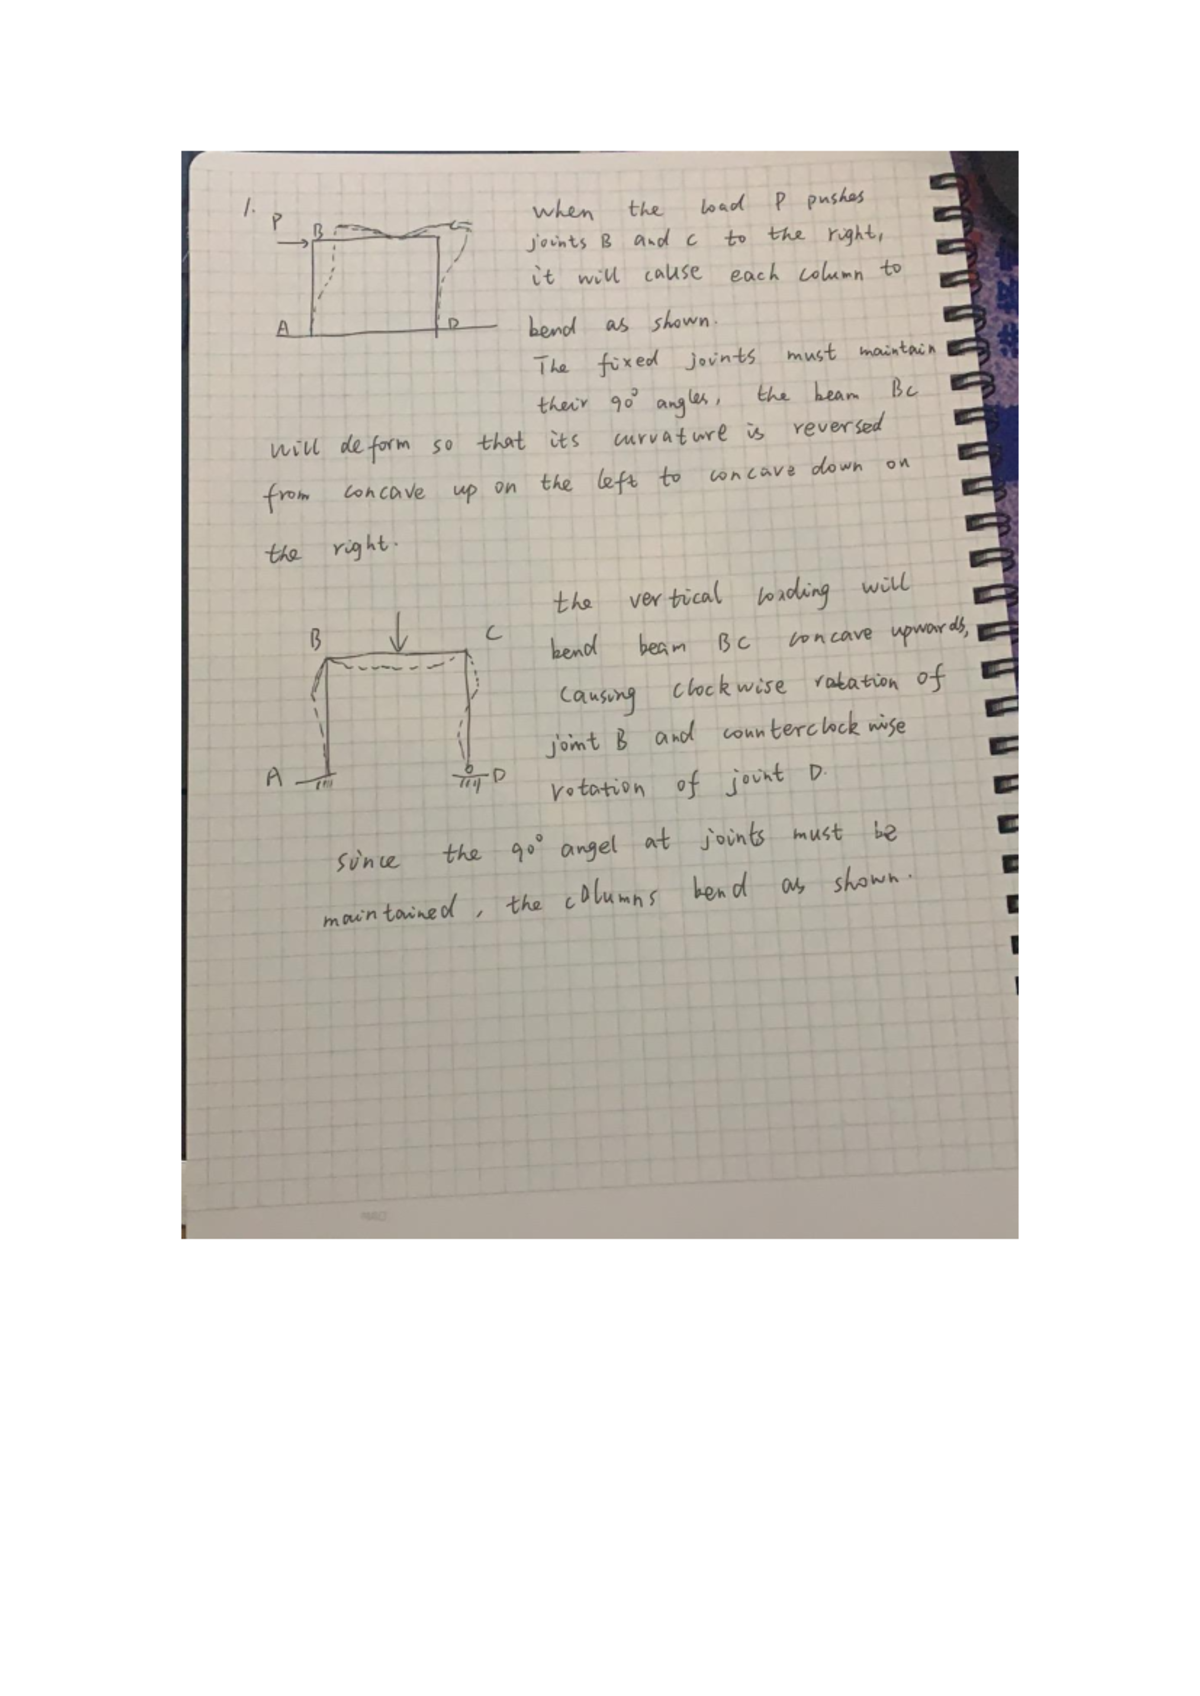 1.
P
B
A
D
When the load P pushes
joints B and C to the right,
it will cause each column to
bend as shown.
The fixed joints must maintain
their 90° angles, the beam BC
will deform so that its curvature is reversed
from concave up on the left to concave down on
the right.
B
C
A
D
the vertical loading will
bend beam BC concave upwards,
causing clockwise rotation of
joint B and counterclockwise
rotation of joint D.
since the 90° angel at joints must be
maintained, the columns bend as shown.